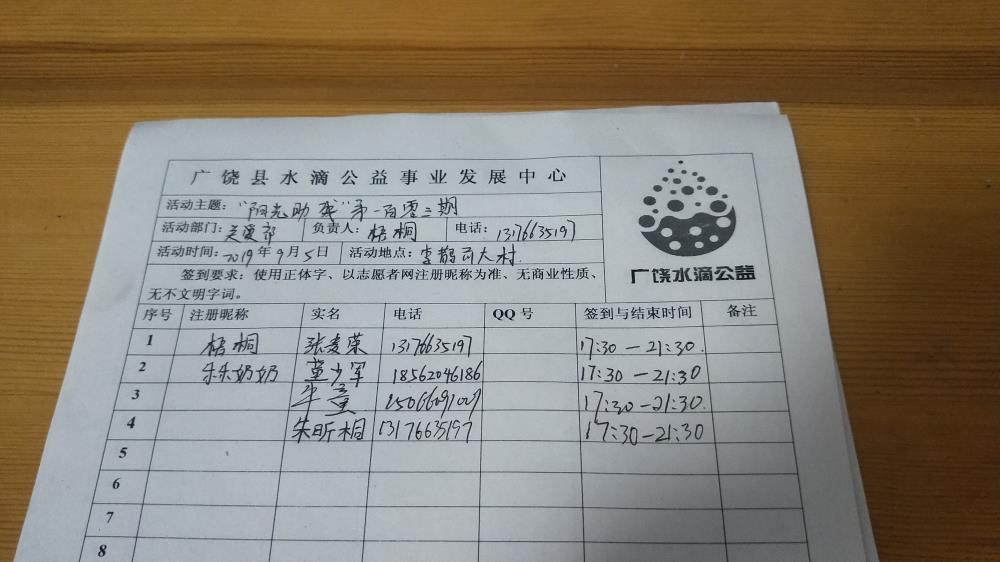 广饶县水滴公益事业发展中心
活动主题：“阳光助学”第一百零三期
活动部门：关爱部 负责人：梧桐 电话：13176635197
活动时间：2019年9月5日 活动地点：李鹊 大村
广饶水滴公益
签到要求：使用正体字、以志愿者网注册昵称为准、无商业性质、
无不文明字词。
序号 注册昵称 实名 电话 QQ号 签到与结束时间 备注
1 梧桐 张麦荣 13176635197 17:30—21:30.
2 朵朵奶奶 董少军 18562046186 17:30—21:30
3 17:30—21:30.
4 朱昕桐 13176635197 17:30—21:30
5
6
7
8